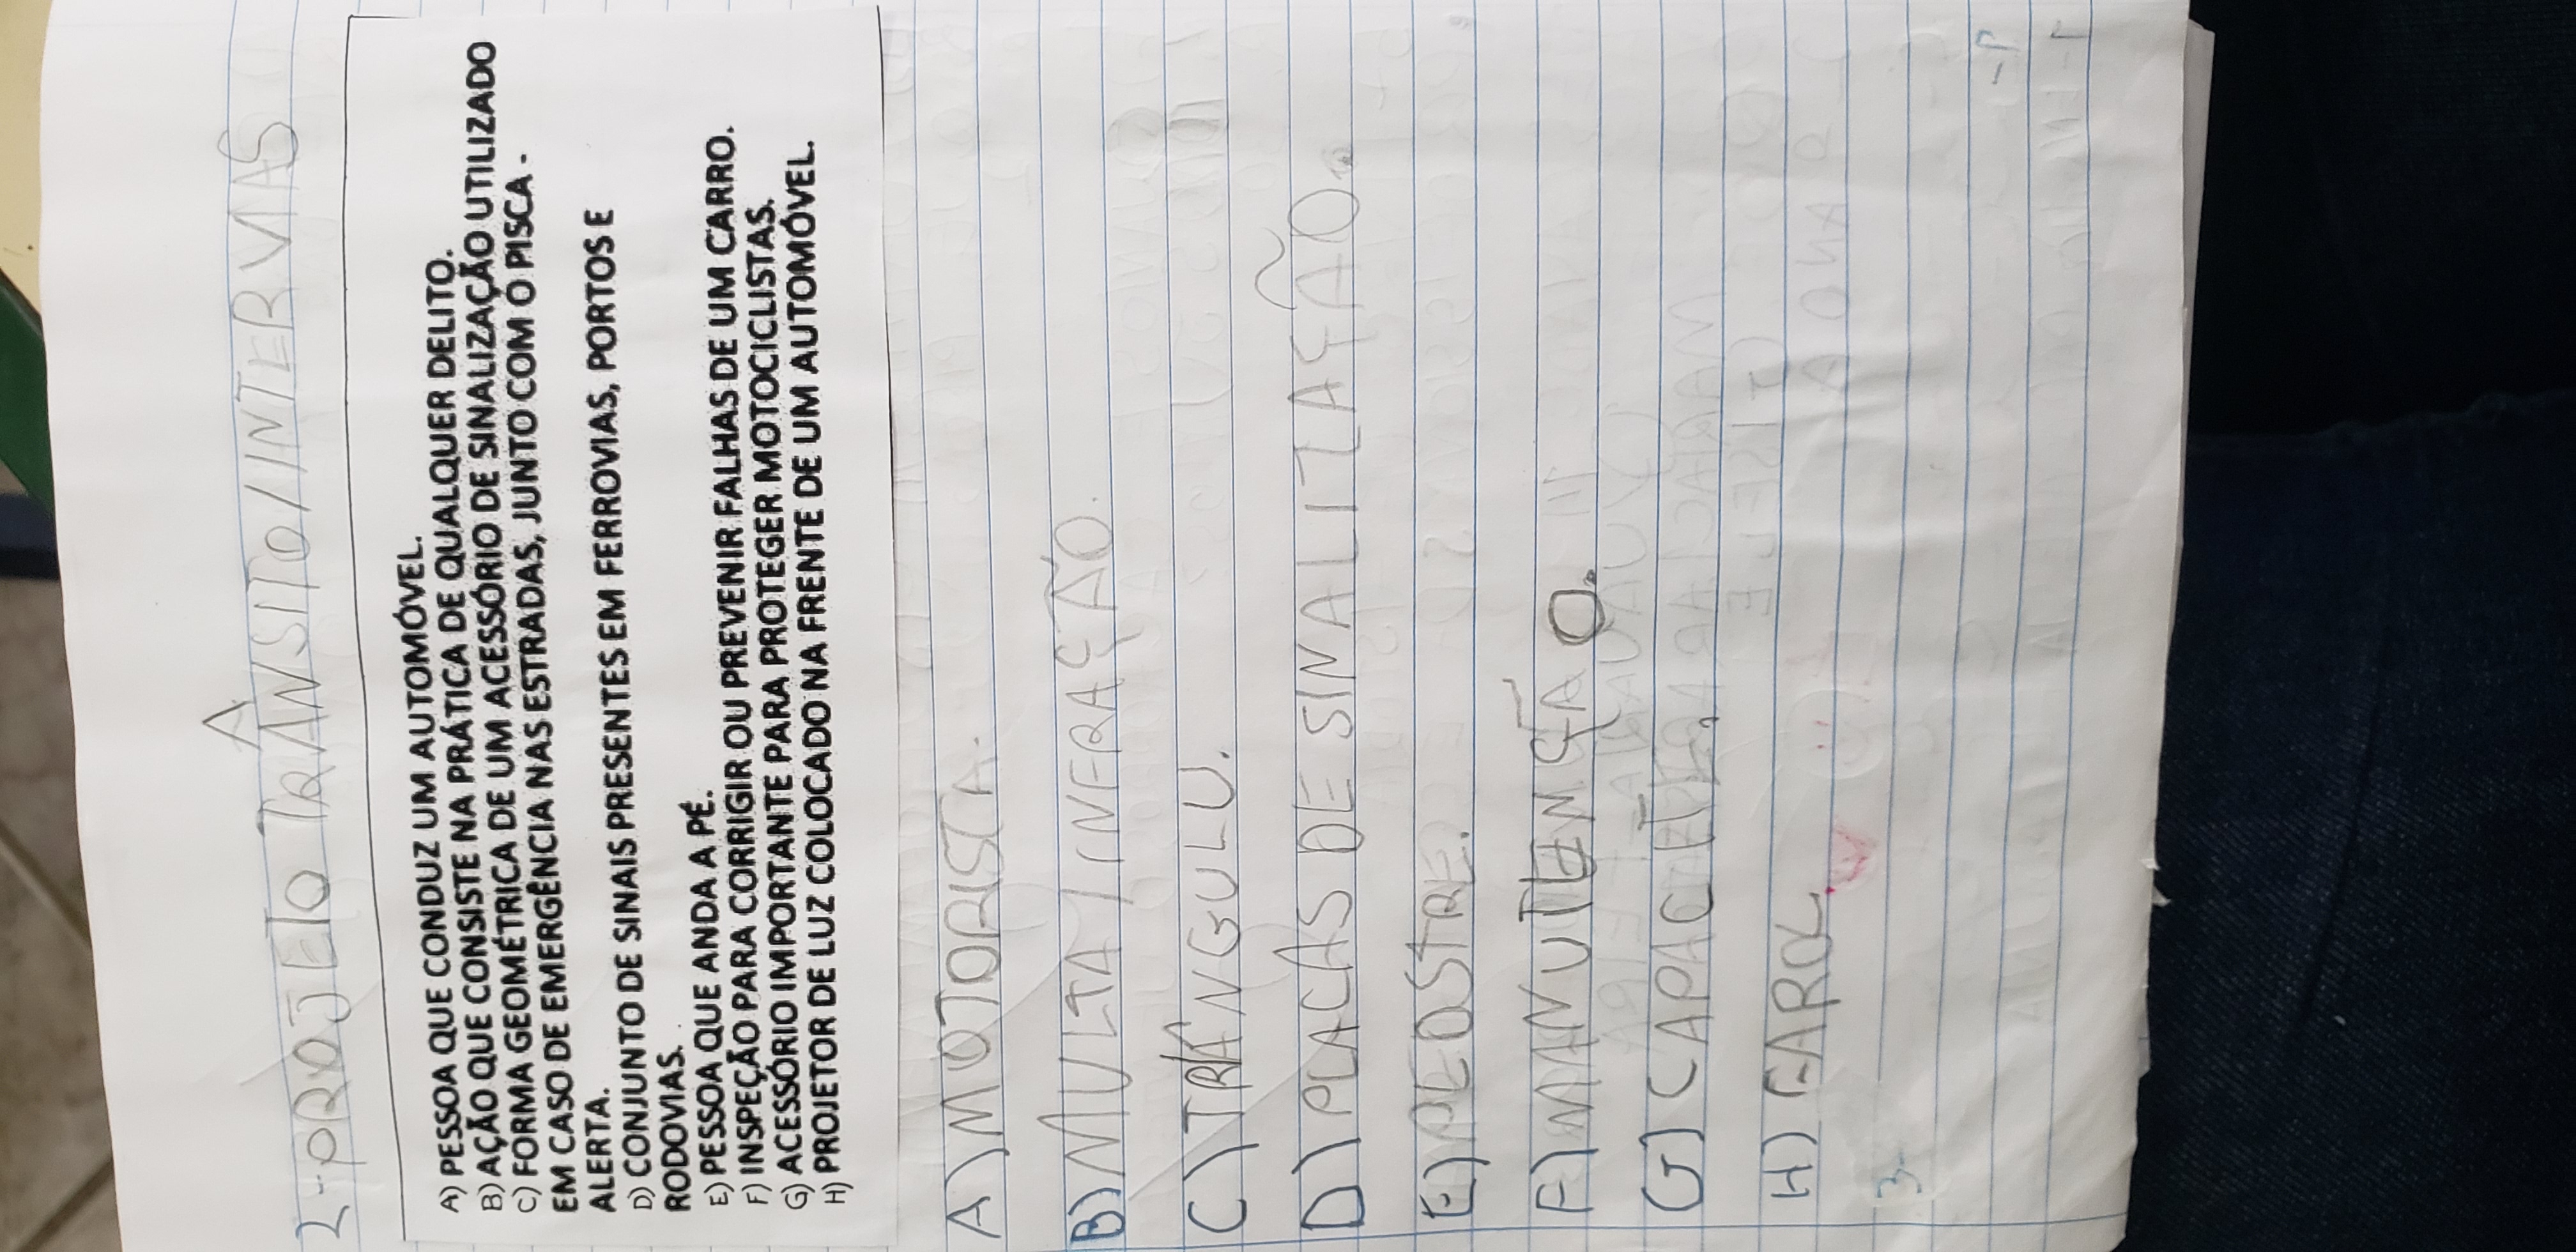 2-PROJETO TRÂNSITO/INTERVIAS
A) PESSOA QUE CONDUZ UM AUTOMÓVEL.
B) AÇÃO QUE CONSISTE NA PRÁTICA DE QUALQUER DELITO.
C) FORMA GEOMÉTRICA DE UM ACESSÓRIO DE SINALIZAÇÃO UTILIZADO
EM CASO DE EMERGÊNCIA NAS ESTRADAS, JUNTO COM O PISCA -
ALERTA.
D) CONJUNTO DE SINAIS PRESENTES EM FERROVIAS, PORTOS E
RODOVIAS.
E) PESSOA QUE ANDA A PÉ.
F) INSPEÇÃO PARA CORRIGIR OU PREVENIR FALHAS DE UM CARRO.
G) ACESSÓRIO IMPORTANTE PARA PROTEGER MOTOCICLISTAS.
H) PROJETOR DE LUZ COLOCADO NA FRENTE DE UM AUTOMÓVEL.
A) MOTORISTA.
B) MULTA / INFRAÇÃO.
C) TRÂNGULU.
D) PLACAS DE SINALIZAÇÃO.
E) PEDSTRE.
F) MANUTENÇÃO.
G) CAPACETE.
H) FAROL
3-